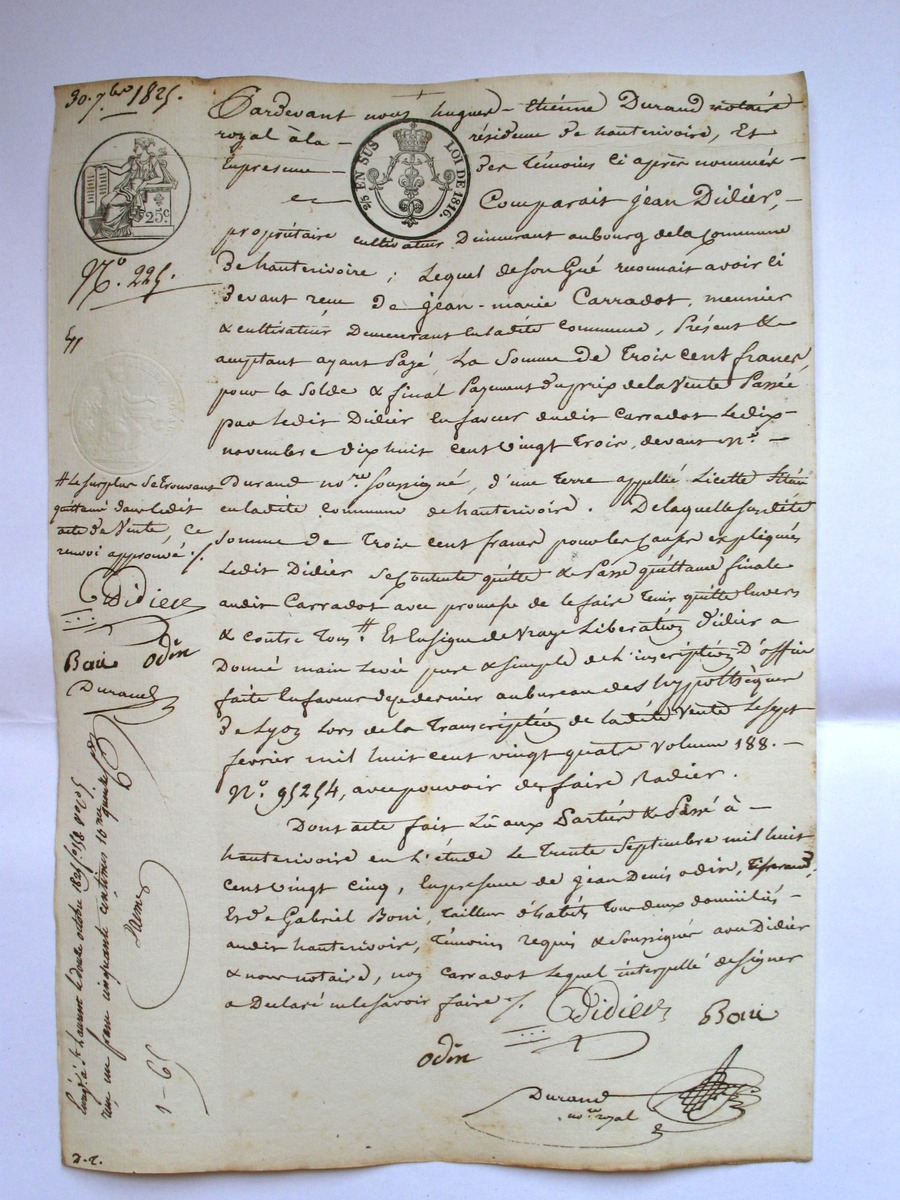 30. 7bre 1825.
25c
25 EN SUS LOI DE 1816.
No. 225.
Pardevant nous hugues - Etiénne Durand notaire
royal à la résidence de hauterivoire, Et
Enpresence des témoins ci après nommés -
Comparait jéan Didier, -
propriétaire cultivateur Demeurant aubourg dela Commune
de hauterivoire ; Lequel deson Gré reconnait avoir ci
devant recu De jéan-marie Carradot, meunier
& cultivateur Demeurant Enladite Commune, Présent &
acceptant ayant Payé, La Somme De trois cent francs
pour la Solde & final Payement duprix dela Vente Passée
par ledit Didier En faveur dudit Carradot Ledix-
novembre Dix huit cent vingt trois, devant Me. -
Durand nore soussigné, d'une terre appellée Licette Située
enladite commune de hauterivoire. Delaquelle susdite
Somme De trois cent francs pour les causes expliquées
Ledit Didier Secontente quitte & Passe quittance finale
audit Carradot avec promesse de le faire tenir quitte Envers
& contre tous # Et Ensigne de Vraye Libération Didier a
Donné main Levée pure & simple de L'inscription D'office
faite Enfaveur dece dernier aubureau des hypothèques
de Lyon Lors dela transcription de ladite Vente Lesept
février mil huit cent vingt quatre volume 188. -
No. 95254, avec pouvoir de faire Radier.
Dont acte fait Lû aux Parties & Passé à -
hauterivoire en L'étude Le trente Septembre mil huit
Cent vingt Cinq, Enpresence de jean Denis odin, tisserand,
Et de Gabriel Boni, tailleur d'habits tous deux domiciliés -
audit hauterivoire, témoins requis & Soussignés avec Didier
& nous notaire, non Carradot Lequel interpellé designer
a Declaré nelesavoir faire ./.
Didier Boni
odin
Durand
nore royal
# Le surplus Setrouvant
quittancé dans ledit
acte de Vente, Ce
renvoi approuvé ./.
Didier
Boni odin
Durand
Enregé. à St. Laurent le douze octobre 1825 fo 158 Vo Co 5
reçu un franc cinquante centimes 10me quinze ces
1 - 65